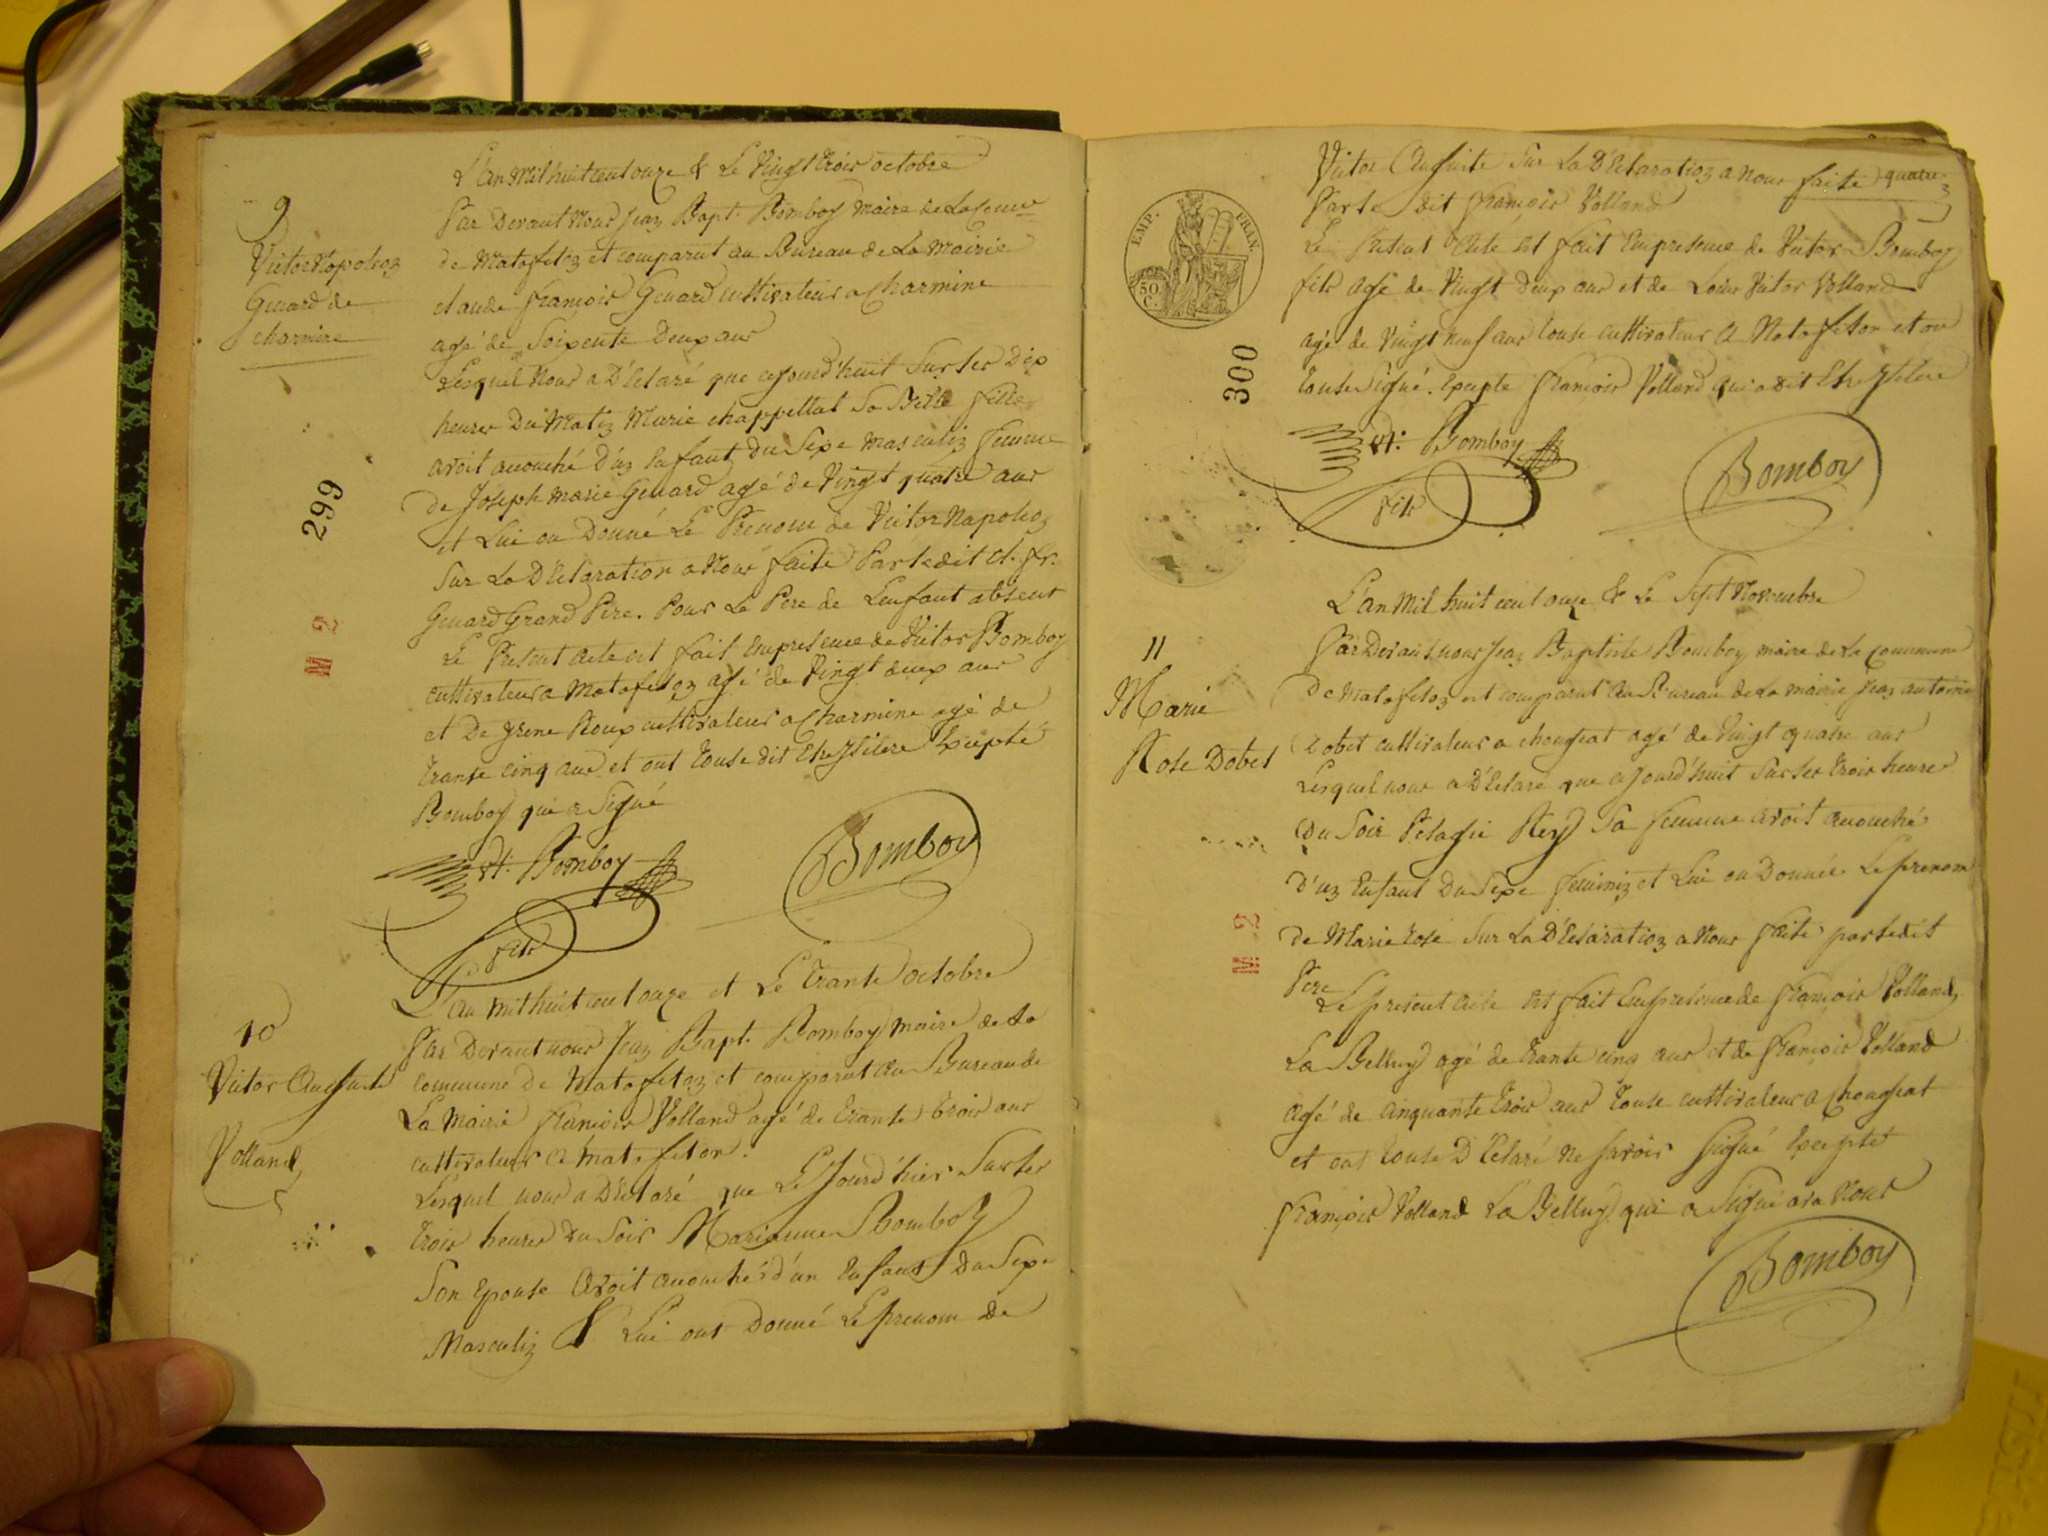 9
Victor Napoleoz
Guiard de
charmine
299
M 2
L'an Mil huit cent onze & Le Vingt trois octobre
Par Devant Nous Jeaz Bapt. Bomboy Maire de La comne
de Matafeloz et comparut au Bureau de La Mairie
claude françois Guiard cultivateur a Charmine
agé de Soixente Deux ans
Lesquel Nous a Déclaré que cejourd'huit Sur les Dix
heures Du Matiz Marie chappellat Sa Belle fille
avoit accouché D'uz Enfant Du Sexe Masculiz femme
de Joseph Marie Guiard agé de Vingt quatre ans
et Lui on Donné Le Prenom de Victor Napoleoz
Sur La Déclaration a Nous faite Par le dit cl. fr.
Guiard Grand Pere. Pour Le Pere de Lenfant absent
Le Present acte est fait En presence de Victor Bomboy
cultivateur a Matafeloz agé de Vingt deux ans
et De Roux cultivateur a Charmine agé de
trante cinq ans et ont touse dit Excepté
Bomboy qui a Signé
Vt. Bomboy
fils
Bomboy
10
Victor Auguste
Volland
L'an mil huit cent onze et Le trante octobre
Par Devant nous Jeaz Bapt. Bomboy maire de La
commune de Matafeloz et comparut au Bureau de
La Mairie François Volland agé de trante trois ans
cultivateur a Matafelon.
Lesquel nous a Déclaré que Le Jourd'hier Sur les
trois heures du Soir Marianne Bomboy
Son Epouse avoit accouchés d'un Enfant Du Sexe
Masculiz & Lui ont Donné Le prenom de
EMP. FRAN.
50
C.
300
Victor Auguste Sur La Déclaratioz a Nous faite quatre
Par le dit François Volland
Le Present Acte est fait En presence de Victor Bomboy
fils agé de Vingt Deux ans et de Louis Victor Volland
agé de Vingt neuf ans touse cultivateur a Matafelon et on
touse Signé. Excepte François Volland qui a dit
Vt. Bomboy
fils
Bomboy
11
Marie
Rose Dobet
M. 2
L'an Mil huit cent onze & Le Sept Novembre
Par Devant nous Jeaz Baptiste Bomboy maire de La Commune
De Matafeloz est comparut au Bureau de La mairie Jeaz antoine
Dobet cultivateur a chougeat agé de Vingt quatre ans
Lesquel nous a Déclaré que cejourd'huit Sur les trois heures
Du Soir Pelagie Rey Sa femme avoit accouché
D'uz Enfant Du Sexe feminiz et Lui on Donnée Le prenom
de Marie rose Sur La Déclaratioz a Nous faite par le dit
Pere
Le present acte est fait En presence de François Volland
La Belluy agé de trante cinq ans et de François Volland
agé de cinquante trois ans touse cultivateur a Chougeat
et ont touse Déclaré ne savoir signé Excepte
François Volland La Belluy qui a Signé avec Nous
Bomboy